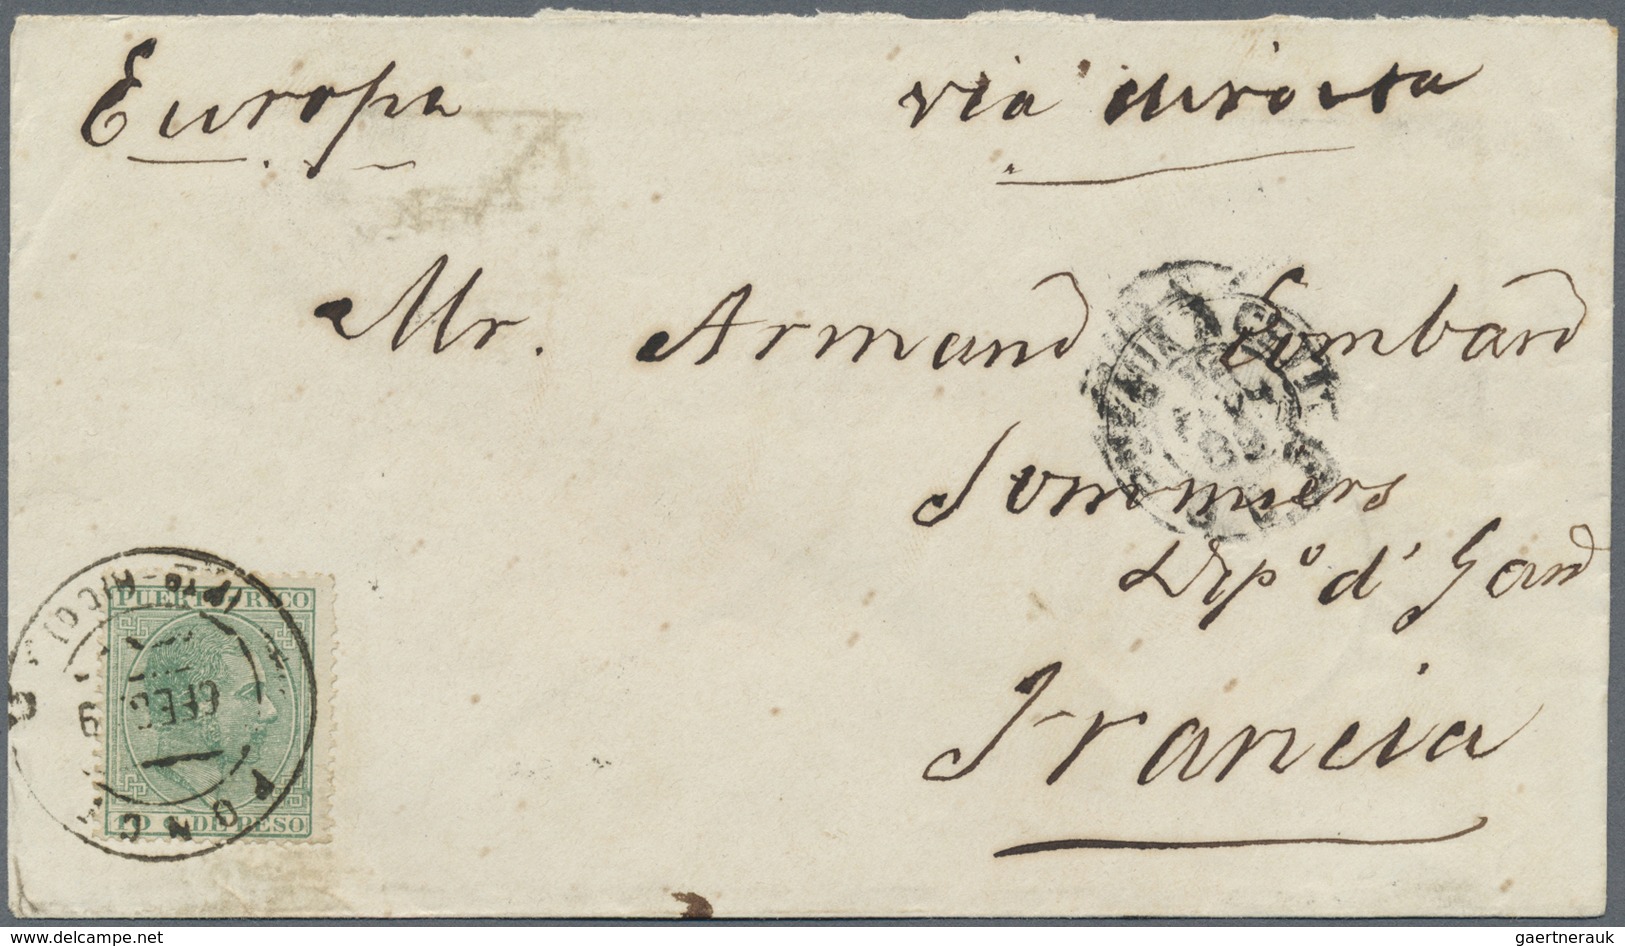 Europa via directa
Mr. Armand Lombard
Sommiers
Depº d' Gard
Francia
PUERTO-RICO
10 C. DE PESO
PONCE
(PTO-RICO)
FEB
83
www.delcampe.net
gaertnerauk